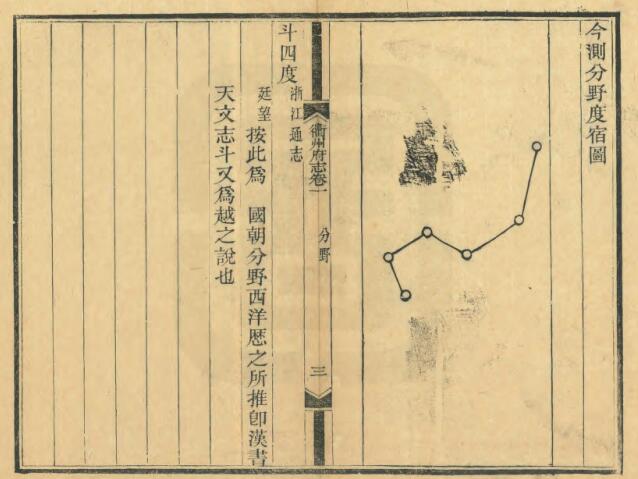 今測分野度宿圖
衢州府志卷一
分野
三
斗四度
浙江通志
廷望按此爲　國朝分野西洋厯之所推卽漢書
天文志斗又爲越之說也